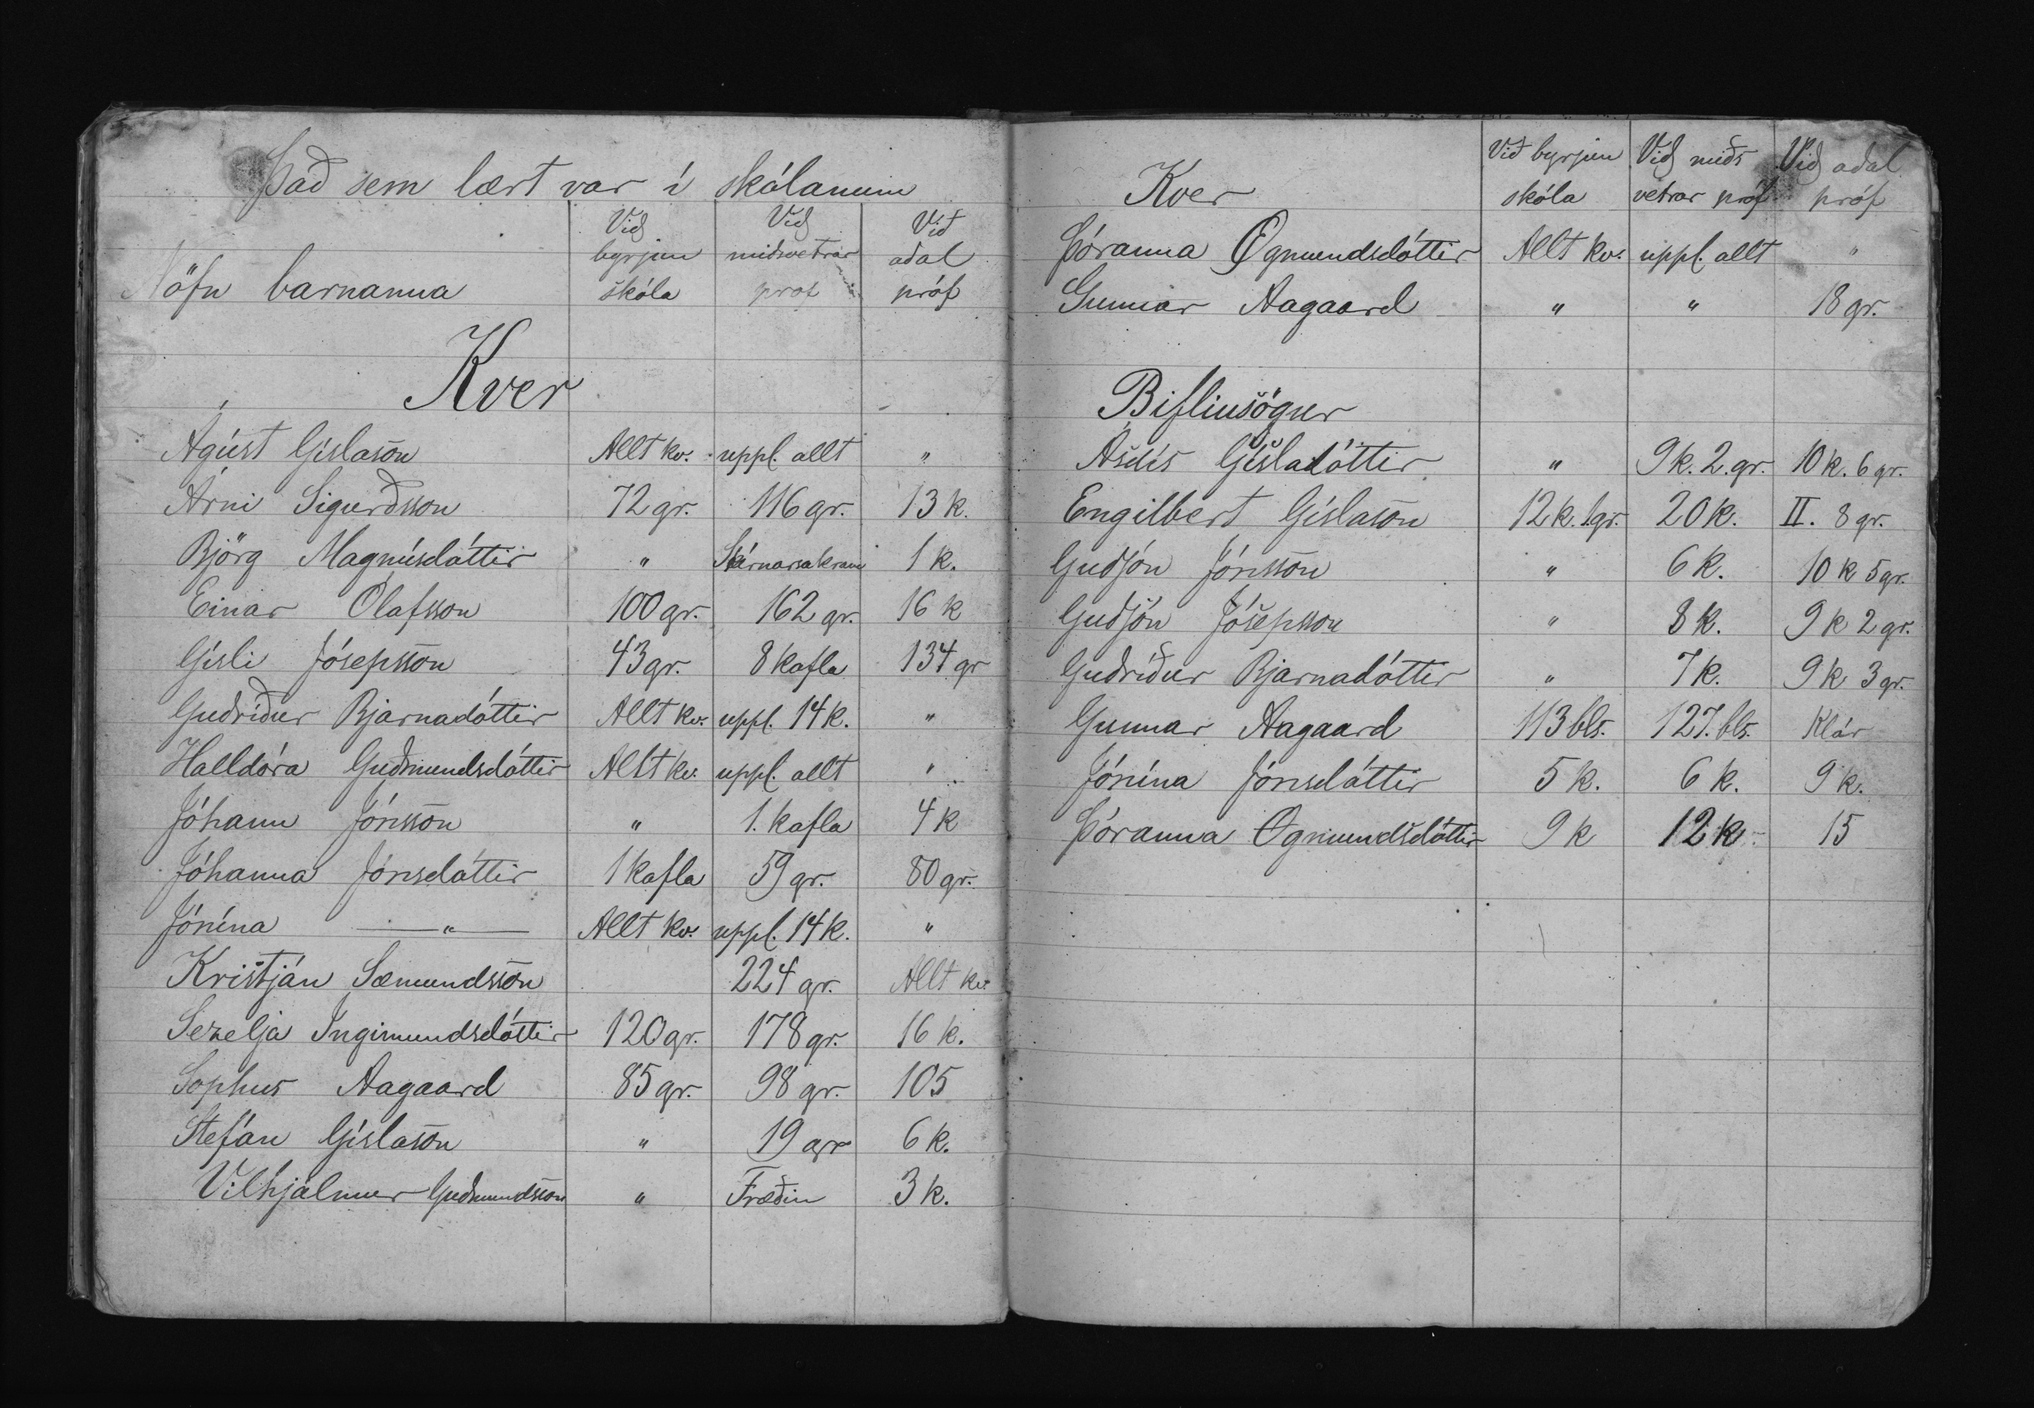 Það sem lært var í skólanum
Nöfn barnanna Við byrjun skóla Við miðsvetrar próf Við aðal próf
Kver
Ágúst Gíslason Allt kv. uppl. allt "
Árni Sigurðsson 72 gr. 116 gr. 13 k.
Björg Magnúsdóttir " 1 k.
Einar Ólafsson 100 gr. 162 gr. 16 k
Gísli Jósepsson 43 gr. 8 kafla 134 gr
Guðríður Bjarnadóttir Allt kv. uppl. 14 k. "
Halldóra Guðmundsdóttir Allt kv. uppl. allt "
Jóhann Jónsson " 1. kafla 4 k
Jóhanna Jónsdóttir 1 kafla 59 gr. 80 gr.
Jónína — " — Allt kv. uppl. 14 k. "
Kristján Sæmundsson 224 gr. Allt kv.
Sezelja Ingimundsdóttir 120 gr. 178 gr. 16 k.
Sophus Aagaard 85 gr. 98 gr. 105
Stefán Gíslason " 19 gr 6 k.
Vilhjálmur Guðmundsson " Fræðin 3 k.
Kver Við byrjun skóla Við miðs vetrar próf Við aðal próf
Þóranna Ögmundsdóttir Allt kv. uppl. allt "
Gunnar Aagaard " " 18 gr.
Biflíusögur
Ásdís Gísladóttir " 9 k. 2. gr. 10 k. 6 gr.
Engilbert Gíslason 12 k. 1 gr. 20 k. II. 8 gr.
Guðjón Jónsson " 6 k. 10 k 5 gr.
Guðjón Jósepsson " 8 k. 9 k 2 gr.
Guðríður Bjarnadóttir " 7 k. 9 k 3 gr.
Gunnar Aagaard 113 bls. 127. bls. Klár
Jónína Jónsdóttir 5 k. 6 k. 9 k.
Þóranna Ögmundsdóttir 9 k 12 k. 15